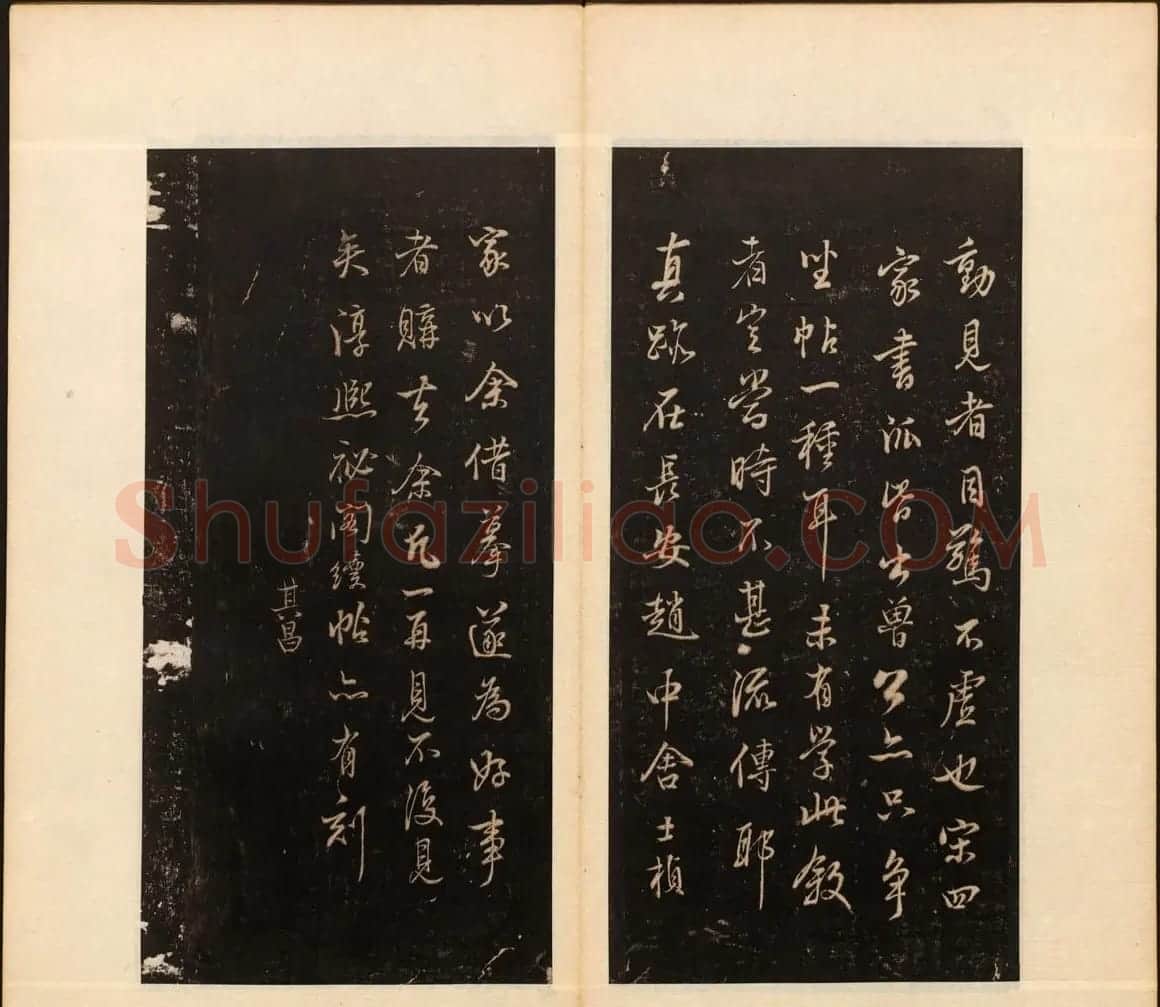 動見者目驚不虛也宋四
家書派皆出魯公亦只爭
坐帖一種耳未有學此敘
者豈當時不甚流傳耶
真跡在長安趙中舍士楨
家以余借摹遂為好事
者購去余凡一再見不復見
矣淳熙祕閣續帖亦有刻
其昌
Shufaziliao.COM